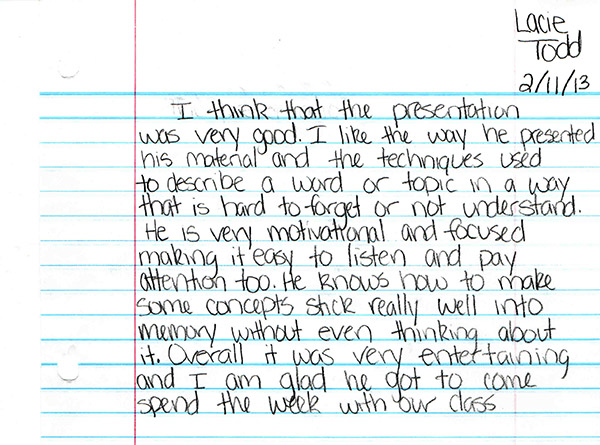 Lacie
Todd
2/11/13
I think that the presentation
was very good. I like the way he presented
his material and the techniques used
to describe a word or topic in a way
that is hard to forget or not understand.
He is very motivational and focused
making it easy to listen and pay
attention too. He knows how to make
some concepts stick really well into
memory without even thinking about
it. Overall it was very entertaining
and I am glad he got to come
spend the week with our class